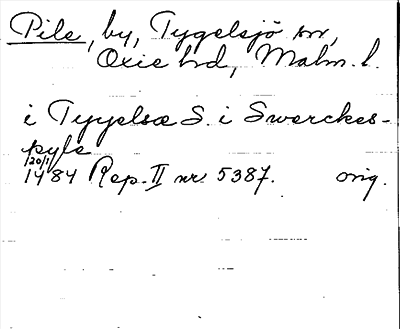 Pile, by, Tygelsjö sn,
Oxie hd, Malm. l.
i Tygelsæ S. i Swerckes-
pyle
[20/1]
1484 Rep. II nr. 5387. orig.